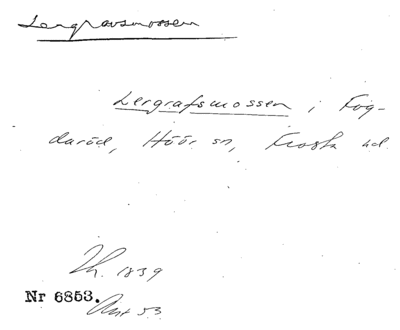 Lergravsmossen
Lergrafsmossen i Fog-
daröd, Höör sn, Frosta hd
Th. 1839
Nr 6853.
Ant 53